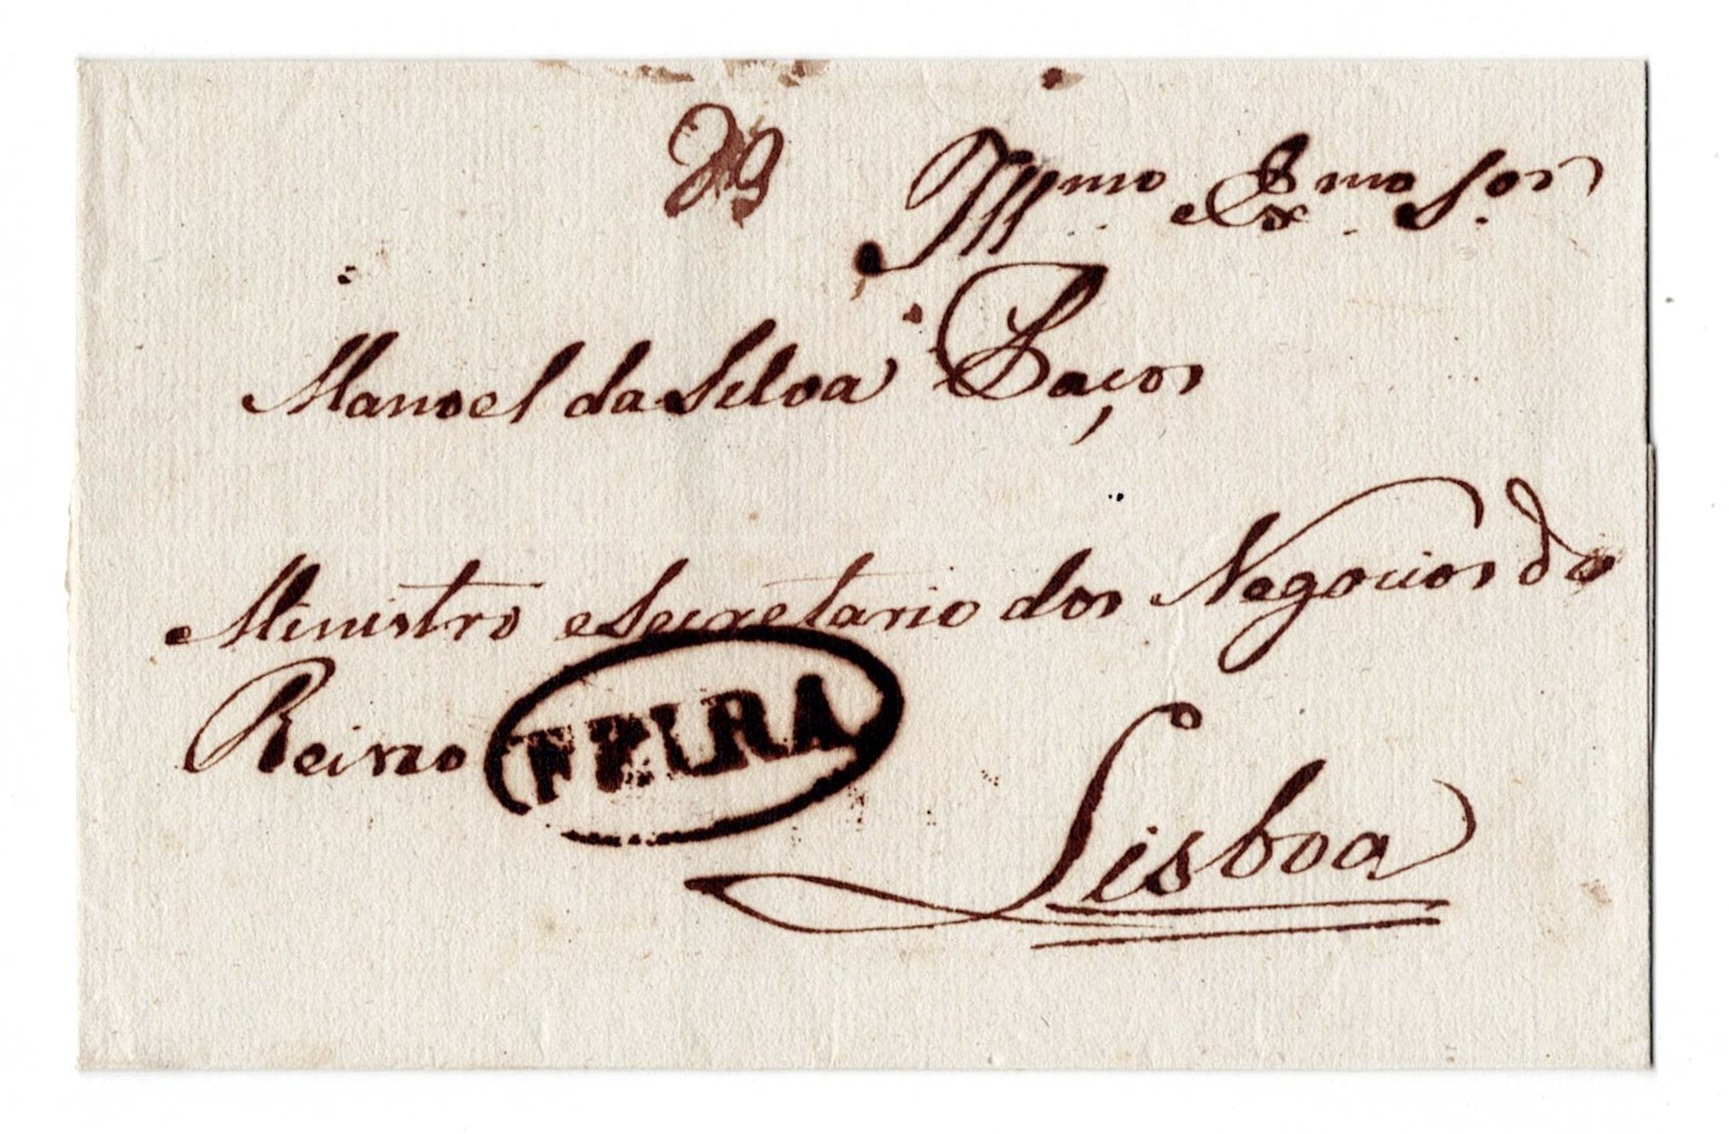 Illmo. Exmo. Sor.
Manoel da Silva Paços
Ministro e Secretario dos Negocios do
Reino
FEIRA
Lisboa